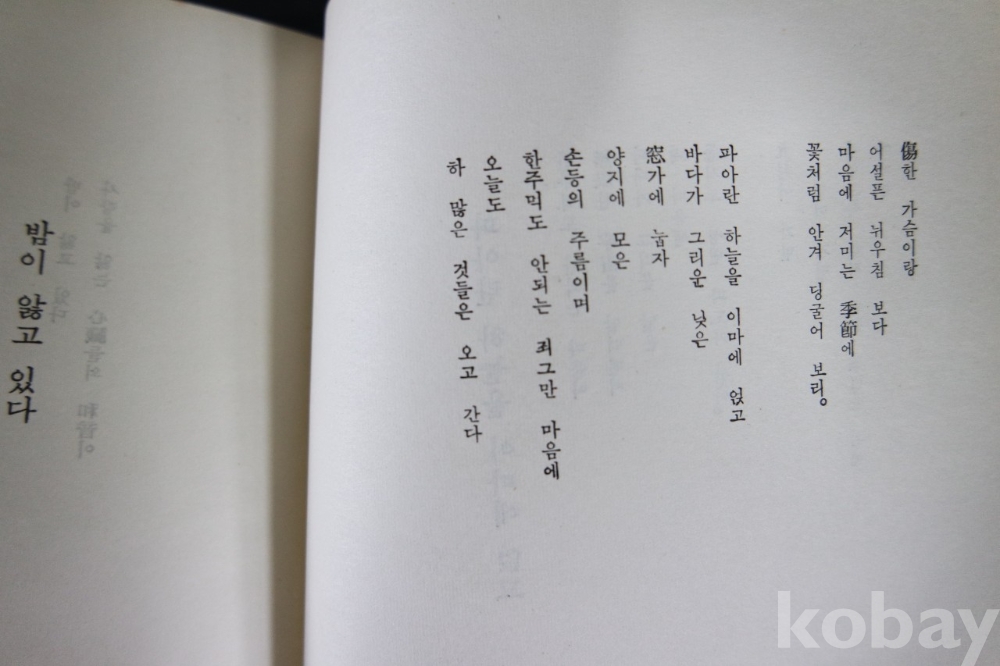 傷한 가슴이랑
어설픈 뉘우침 보다
마음에 저미는 季節에
꽃처럼 안겨 딩굴어 보리。
파아란 하늘을 이마에 얹고
바다가 그리운 낮은
窓가에 눕자
양지에 모은
손등의 주름이며
한주먹도 안되는 죄그만 마음에
오늘도
하 많은 것들은 오고 간다
밤이 앓고 있다
kobay